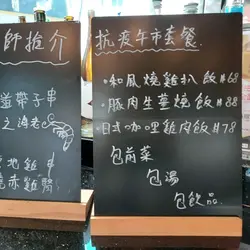 師推介
帶子串
之海老
地雞串
燒赤雞
抗疫午市套餐
・和風燒雞扒飯 #68
・豚肉生薑燒飯 #88
・日式咖哩雞肉飯 #78
包前菜
包湯
包飲品